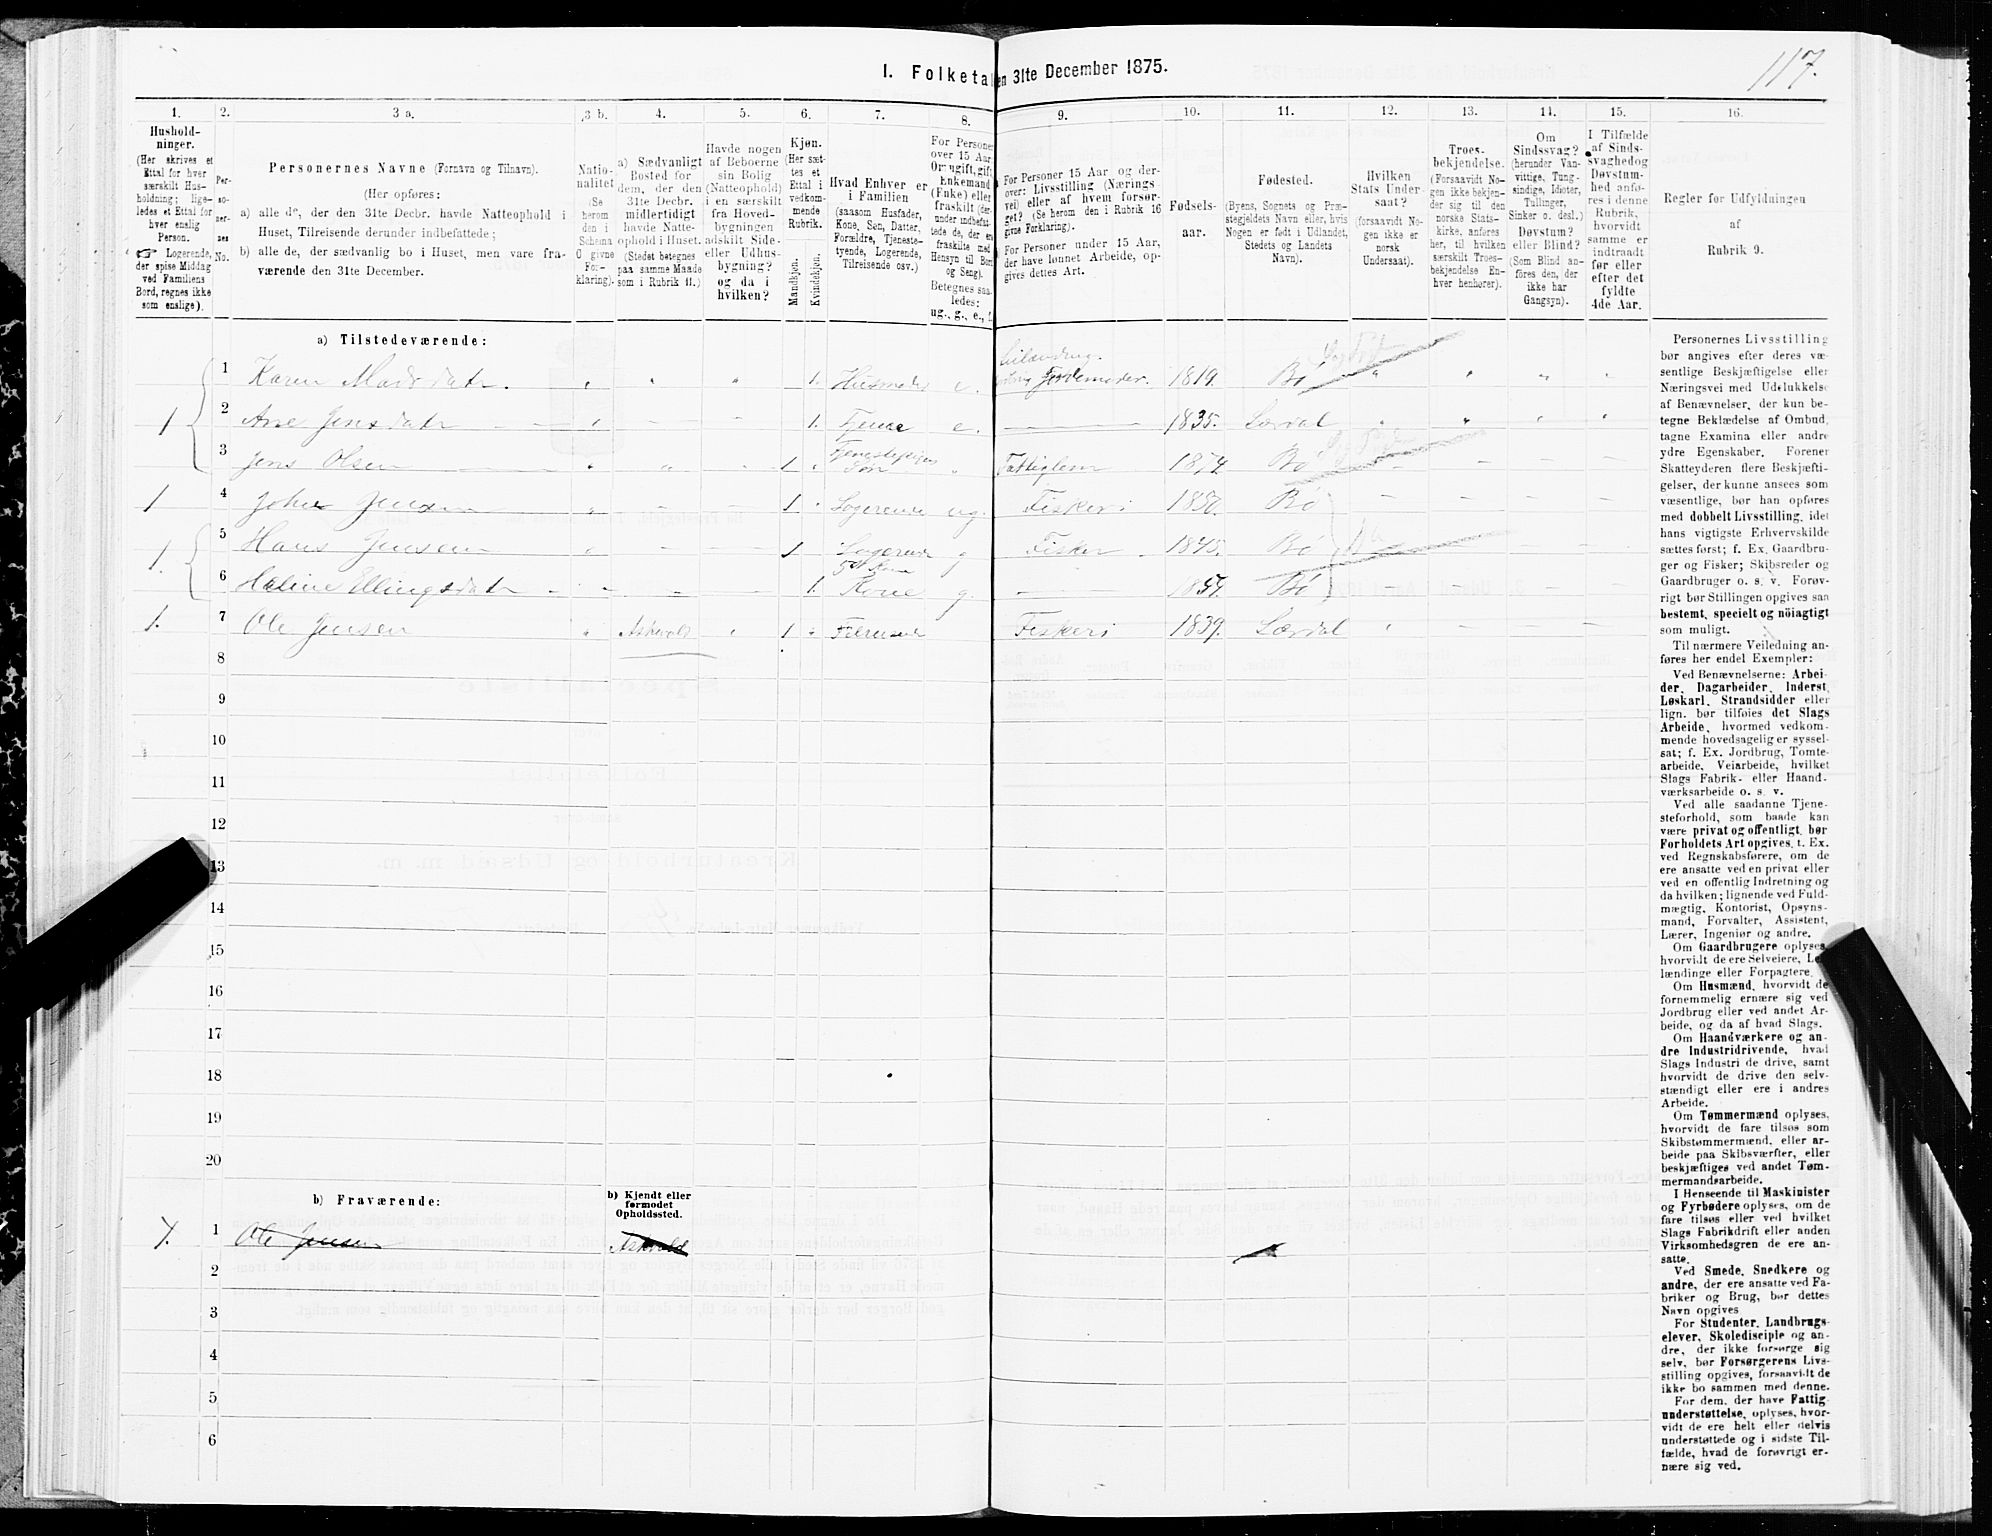 117.
I. Folketal den 31te December 1875.
1. 2. 3 a. 3 b. 4. 5. 6. 7. 8. 9. 10. 11. 12. 13. 14. 15. 16.
Hushold-
ninger.
(Her skrives et
Ettal for hver
særskilt Hus-
holdning; lige-
ledes et Ettal for
hver enslig
Person.
☞ Logerende,
der spise Middag
ved Familiens
Bord, regnes ikke
som enslige).
Per-
so-
ner-
nes
No.
Personernes Navne (Fornavn og Tilnavn).
(Her opføres:
a) alle de, der den 31te Decbr. havde Natteophold i
Huset, Tilreisende derunder indbefattede;
b) alle de, der sædvanlig bo i Huset, men vare fra-
værende den 31te December.
Natio-
nalitet
(Se
herom
den i
Schema
C givne
For-
klaring).
a) Sædvanligt
Bosted for
dem, der den
31te Decbr.
midlertidigt
havde Natte-
ophold i Huset.
(Stedet betegnes
paa samme Maade
som i Rubrik 11.)
Havde nogen
af Beboerne
sin Bolig
(Natteophold)
i en særskilt
fra Hoved-
bygningen
adskilt Side-
eller Udhus-
bygning?
og da i
hvilken?
Kjøn.
(Her sæt-
tes et
Ettal i
vedkom-
mende
Rubrik.
Mandkjøn.
Kvindekjøn.
Hvad Enhver er
i Familien
(saasom Husfader,
Kone, Søn, Datter,
Forældre, Tjeneste-
tyende, Logerende,
Tilreisende osv.)
For Personer
over 15 Aar:
Om ugift, gift,
Enkemand
(Enke) eller
fraskilt (der-
under indbefat-
tede de, der ere
fraskilte med
Hensyn til Bord
og Seng).
Betegnes saa-
ledes:
ug., g., e., f.
For Personer 15 Aar og der-
over: Livsstilling (Nærings-
vei) eller af hvem forsør-
get? (Se herom den i Rubrik 16
givne Forklaring).
For Personer under 15 Aar,
der have lønnet Arbeide, op-
gives dettes Art.
Fødsels-
aar.
Fødested.
(Byens, Sognets og Præ-
stegjeldets Navn eller, hvis
Nogen er født i Udlandet,
Stedets og Landets
Navn).
Hvilken
Stats Under-
saat?
(forsaavidt No-
gen ikke er
norsk
Undersaat).
Troes-
bekjendelse.
(Forsaavidt No-
gen ikke bekjen-
der sig til den
norske Stats-
kirke, anføres
her, til hvilken
særskilt Troes-
bekjendelse En-
hver henhører).
Om
Sindssvag?
(herunder Van-
vittige, Tung-
sindige, Idioter,
Tullinger,
Sinker o. desl.)
Døvstum?
eller Blind?
(Som Blind an-
føres den, der
ikke har
Gangsyn).
I Tilfælde
af Sinds-
svaghed og
Døvstum-
hed anfø-
res i denne
Rubrik,
hvorvidt
samme er
indtraadt
før eller
efter det
fyldte
4de Aar.
Regler for Udfyldningen
af
Rubrik 9.
a) Tilstedeværende:
1 Karen Madsdatr. 1. e. Jordemoder. 1819. Bø
1 2 Ane Jensdatr 1. e. 1835. Lærdal
3 Jens Olsen 1 Søn Fattiglem 1874. Bø
1 4 Johan Jensen 1 Logerende ug. Fiskeri 1850. Bø
1. 5 Hans Jensen 1 Logerende g Fisker 1845. Bø
6 Heline Ellingsdatr 1. Kone g. Bø
1. 7 Ole Jensen Askvold 1 Fiskeri 1839. Lærdal
8
9
10
11
12
13
14
15
16
17
18
19
20
b) Fraværende:
b) Kjendt eller
formodet
Opholdssted.
1. 1 Ole Jensen Askvold
2
3
4
5
6
Personernes Livsstilling
bør angives efter deres væ-
sentlige Beskjæftigelse eller
Næringsvei med Udelukkelse
af Benævnelser, der kun be-
tegne Beklædelse af Ombud,
tagne Examina eller andre
ydre Egenskaber. Forener
Skatteyderen flere Beskjæfti-
gelser, der kunne ansees som
væsentlige, bør han opføres
med dobbelt Livsstilling, idet
hans vigtigste Erhvervskilde
sættes først; f. Ex. Gaardbru-
ger og Fisker; Skibsreder og
Gaardbruger o. s. v. Forøv-
rigt bør Stillingen opgives saa
bestemt, specielt og nøiagtigt
som muligt.
Til nærmere Veiledning an-
føres her endel Exempler:
Ved Benævnelserne: Arbei-
der, Dagarbeider, Inderst,
Løskarl, Strandsidder eller
lign. bør tilføies det Slags
Arbeide, hvormed vedkom-
mende hovedsagelig er syssel-
sat; f. Ex. Jordbrug, Tomte-
arbeide, Veiarbeide, hvilket
Slags Fabrik- eller Haand-
værksarbeide o. s. v.
Ved alle saadanne Tjene-
steforhold, som baade kan
være privat og offentligt, bør
Forholdets Art opgives, t. Ex.
ved Regnskabsførere, om de
ere ansatte ved en privat eller
ved en offentlig Indretning og
da hvilken; lignende ved Fuld-
mægtig, Kontorist, Opsyns-
mand, Forvalter, Assistent,
Lærer, Ingeniør og andre.
Om Gaardbrugere oplyses,
hvorvidt de ere Selveiere, Lei-
lændinge eller Forpagtere.
Om Husmænd, hvorvidt de
fornemmelig ernære sig ved
Jordbrug eller ved andet Ar-
beide, og da af hvad Slags.
Om Haandværkere og an-
dre Industridrivende, hvad
Slags Industri de drive, samt
hvorvidt de drive den selv-
stændigt eller ere i andres
Arbeide.
Om Tømmermænd oplyses,
hvorvidt de fare tilsøs som
Skibstømmermænd, eller ar-
beide paa Skibsværfter, eller
beskjæftiges ved andet Tøm-
mermandsarbeide.
I Henseende til Maskinister
og Fyrbødere oplyses, om de
fare tilsøs eller ved hvilket
Slags Fabrikdrift eller anden
Virksomhedsgren de ere an-
satte.
Ved Smede, Snedkere og
andre, der ere ansatte ved Fa-
briker og Brug, bør dettes
Navn opgives
For Studenter, Landbrugs-
elever, Skoledisciple og an-
dre, der ikke forsørge sig
selv, bør Forsørgerens Livs-
stilling opgives, forsaavidt de
ikke bo sammen med denne.
For dem, der have Fattig-
understøttelse, oplyses, hvor-
vidt de ere helt eller delvis
understøttede og i sidste Til-
fælde, hvad de forøvrigt er-
nære sig ved.